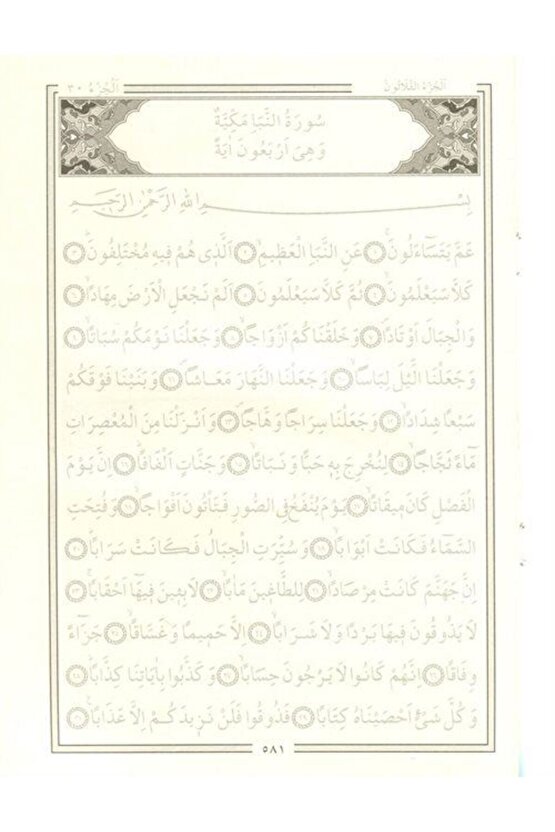 اَلْجُزْءُ الثَّلَاثُونَ اَلْجُزْءُ ٣٠
سُورَةُ النَّبَأِ مَكِّيَّةٌ
وَهِيَ اَرْبَعُونَ اٰيَةً
بِسْمِ اللّٰهِ الرَّحْمٰنِ الرَّحِيمِ
عَمَّ يَتَسَٓاءَلُونَۚ ﴿١﴾ عَنِ النَّبَأِ الْعَظِيمِۙ ﴿٢﴾ اَلَّذِى هُمْ فِيهِ مُخْتَلِفُونَۜ ﴿٣﴾
كَلَّا سَيَعْلَمُونَۙ ﴿٤﴾ ثُمَّ كَلَّا سَيَعْلَمُونَ ﴿٥﴾ اَلَمْ نَجْعَلِ الْاَرْضَ مِهَادًاۙ ﴿٦﴾
وَالْجِبَالَ اَوْتَادًاۙ ﴿٧﴾ وَخَلَقْنَاكُمْ اَزْوَاجًاۙ ﴿٨﴾ وَجَعَلْنَا نَوْمَكُمْ سُبَاتًاۙ ﴿٩﴾
وَجَعَلْنَا الَّيْلَ لِبَاسًاۙ ﴿١٠﴾ وَجَعَلْنَا النَّهَارَ مَعَاشًاۖ ﴿١١﴾ وَبَنَيْنَا فَوْقَكُمْ
سَبْعًا شِدَادًاۙ ﴿١٢﴾ وَجَعَلْنَا سِرَاجًا وَهَّاجًاۙ ﴿١٣﴾ وَاَنْزَلْنَا مِنَ الْمُعْصِرَاتِ
مَٓاءً ثَجَّاجًاۙ ﴿١٤﴾ لِنُخْرِجَ بِهِ حَبًّا وَنَبَاتًاۙ ﴿١٥﴾ وَجَنَّاتٍ اَلْفَافًاۜ ﴿١٦﴾ اِنَّ يَوْمَ
الْفَصْلِ كَانَ مِيقَاتًاۙ ﴿١٧﴾ يَوْمَ يُنْفَخُ فِى الصُّورِ فَتَأْتُونَ اَفْوَاجًاۙ ﴿١٨﴾ وَفُتِحَتِ
السَّمَٓاءُ فَكَانَتْ اَبْوَابًاۙ ﴿١٩﴾ وَسُيِّرَتِ الْجِبَالُ فَكَانَتْ سَرَابًاۜ ﴿٢٠﴾
اِنَّ جَهَنَّمَ كَانَتْ مِرْصَادًاۙ ﴿٢١﴾ لِلطَّاغِينَ مَاٰبًاۙ ﴿٢٢﴾ لَابِثِينَ فِيهَٓا اَحْقَابًاۚ ﴿٢٣﴾
لَا يَذُوقُونَ فِيهَا بَرْدًا وَلَا شَرَابًاۙ ﴿٢٤﴾ اِلَّا حَمِيمًا وَغَسَّاقًاۙ ﴿٢٥﴾ جَزَٓاءً
وِفَاقًاۜ ﴿٢٦﴾ اِنَّهُمْ كَانُوا لَا يَرْجُونَ حِسَابًاۙ ﴿٢٧﴾ وَكَذَّبُوا بِاٰيَاتِنَا كِذَّابًاۜ ﴿٢٨﴾
وَكُلَّ شَيْءٍ اَحْصَيْنَاهُ كِتَابًاۙ ﴿٢٩﴾ فَذُوقُوا فَلَنْ نَزِيدَكُمْ اِلَّا عَذَابًا۟ ﴿٣٠﴾
٥٨١